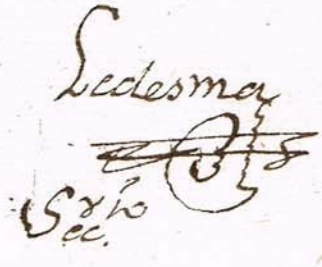 Ledesma
Srio
ec.